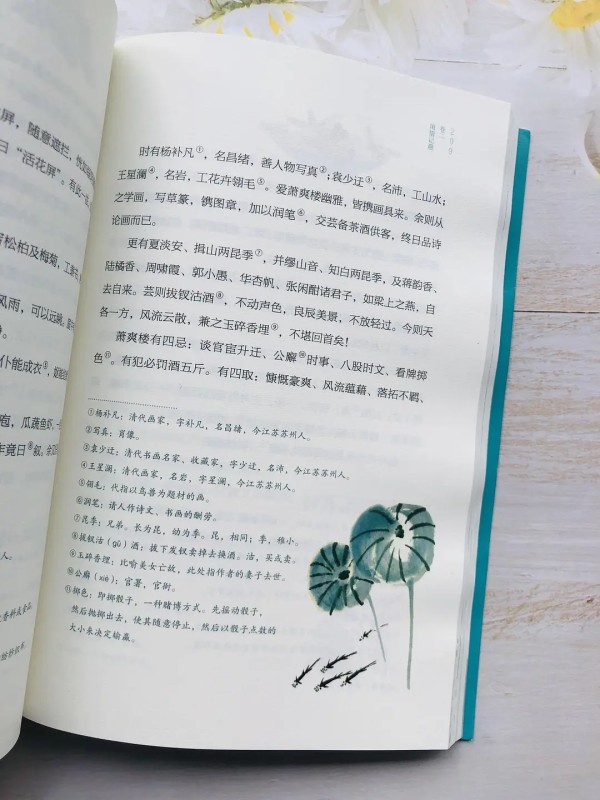 屏，随意遮拦，
日“活花屏”。有此一
松柏及梅菊，
风雨，可以远眺，
仆能成衣
瓜蔬鱼虾，
卷二
闲情记趣
时有杨补凡①，名昌绪，善人物写真②；袁少迂③，名沛，工山水；
王星澜④，名岩，工花卉翎毛⑤。爱萧爽楼幽雅，皆携画具来。余则从
之学画，写草篆，镌图章，加以润笔⑥，交芸备茶酒供客，终日品诗
论画而已。
更有夏淡安、揖山两昆季⑦，并缪山音、知白两昆季，及蒋韵香、
陆橘香、周啸霞、郭小愚、华杏帆、张闲酣诸君子，如梁上之燕，自
去自来。芸则拔钗沽酒⑧，不动声色，良辰美景，不放轻过。今则天
各一方，风流云散，兼之玉碎香埋⑨，不堪回首矣！
萧爽楼有四忌：谈官宦升迁、公廨⑩时事、八股时文、看牌掷
色⑪。有犯必罚酒五斤。有四取：慷慨豪爽、风流蕴藉、落拓不羁、
①杨补凡：清代画家，字补凡，名昌绪，今江苏苏州人。
②写真：肖像。
③袁少迂：清代书画名家、收藏家，字少迂，名沛，今江苏苏州人。
④王星澜：清代画家，名岩，字星澜，今江苏苏州人。
⑤翎毛：代指以鸟兽为题材的画。
⑥润笔：请人作诗文、书画的酬劳。
⑦昆季：兄弟。长为昆，幼为季。昆，相同；季，稚小。
⑧拔钗沽（gū）酒：拔下发钗卖掉去换酒。沽，买或卖。
⑨玉碎香埋：比喻美女亡故，此处指作者的妻子去世。
⑩公廨（xiè）：官署，官衙。
⑪掷色：即掷骰子，一种赌博方式。先摇动骰子，
然后抛掷出去，使其随意停止，然后以骰子点数的
大小来决定输赢。